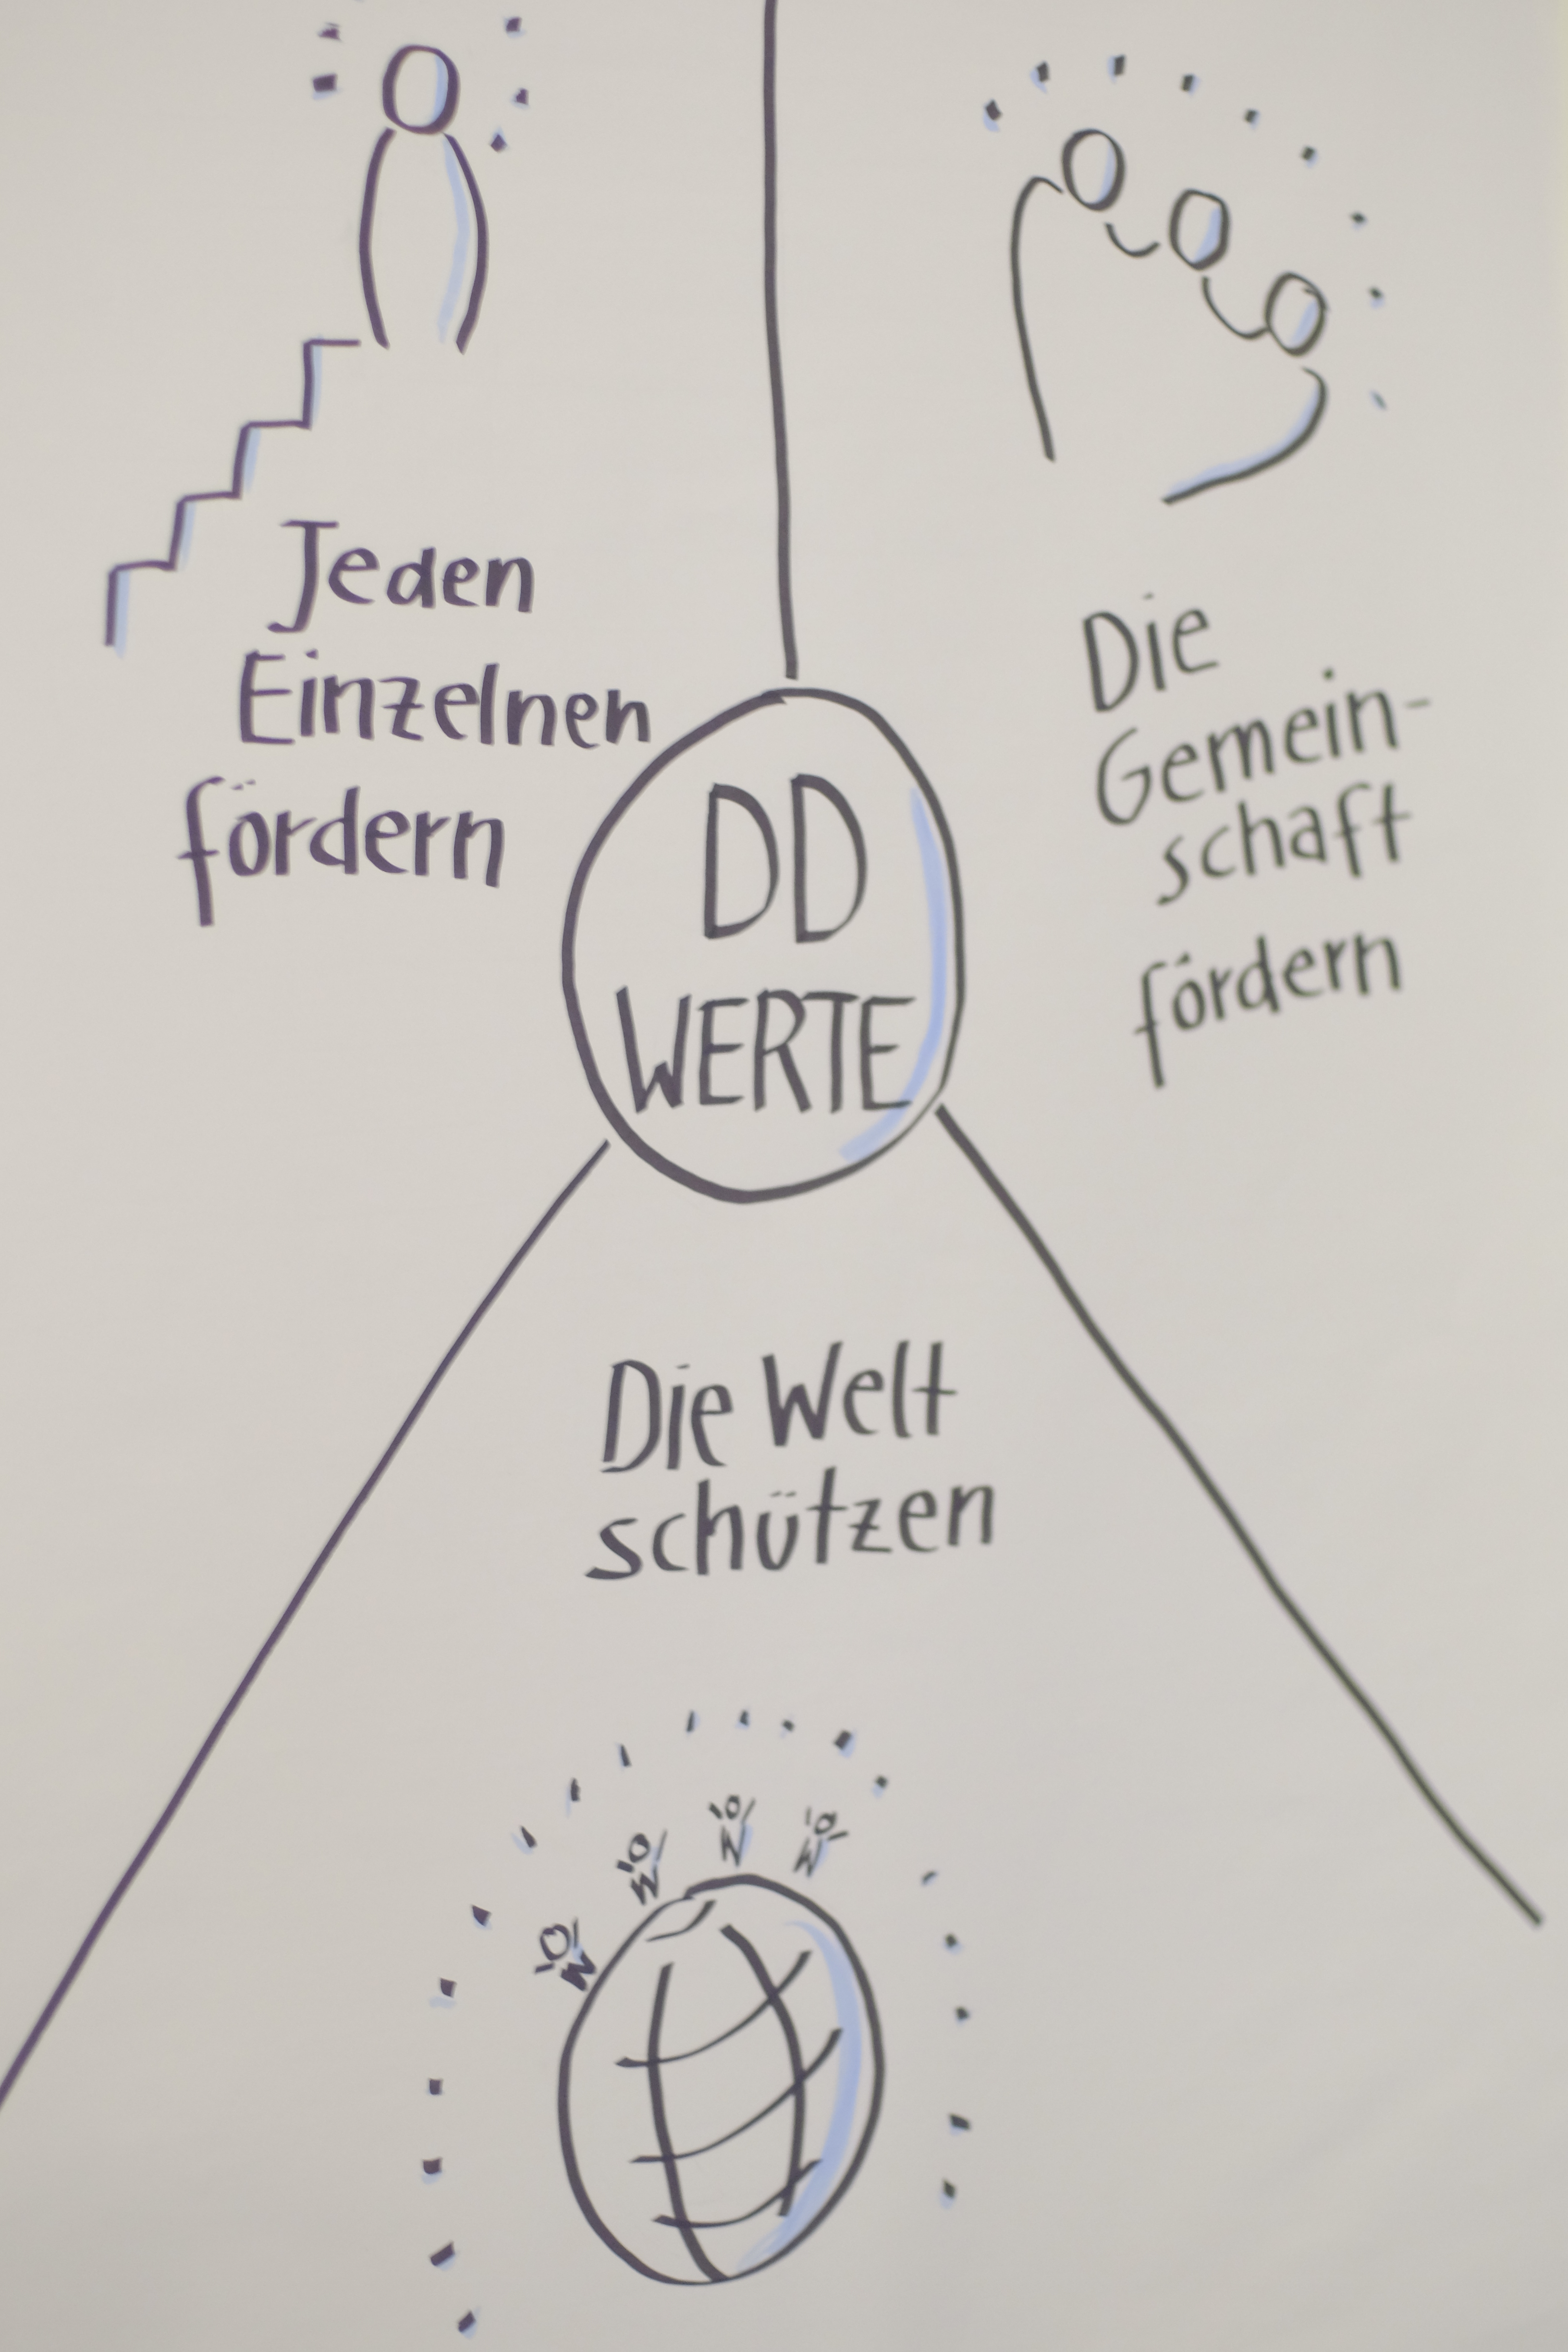 Jeden
Einzelnen
fördern
Die
Gemein-
schaft
fördern
DD
WERTE
Die Welt
schützen